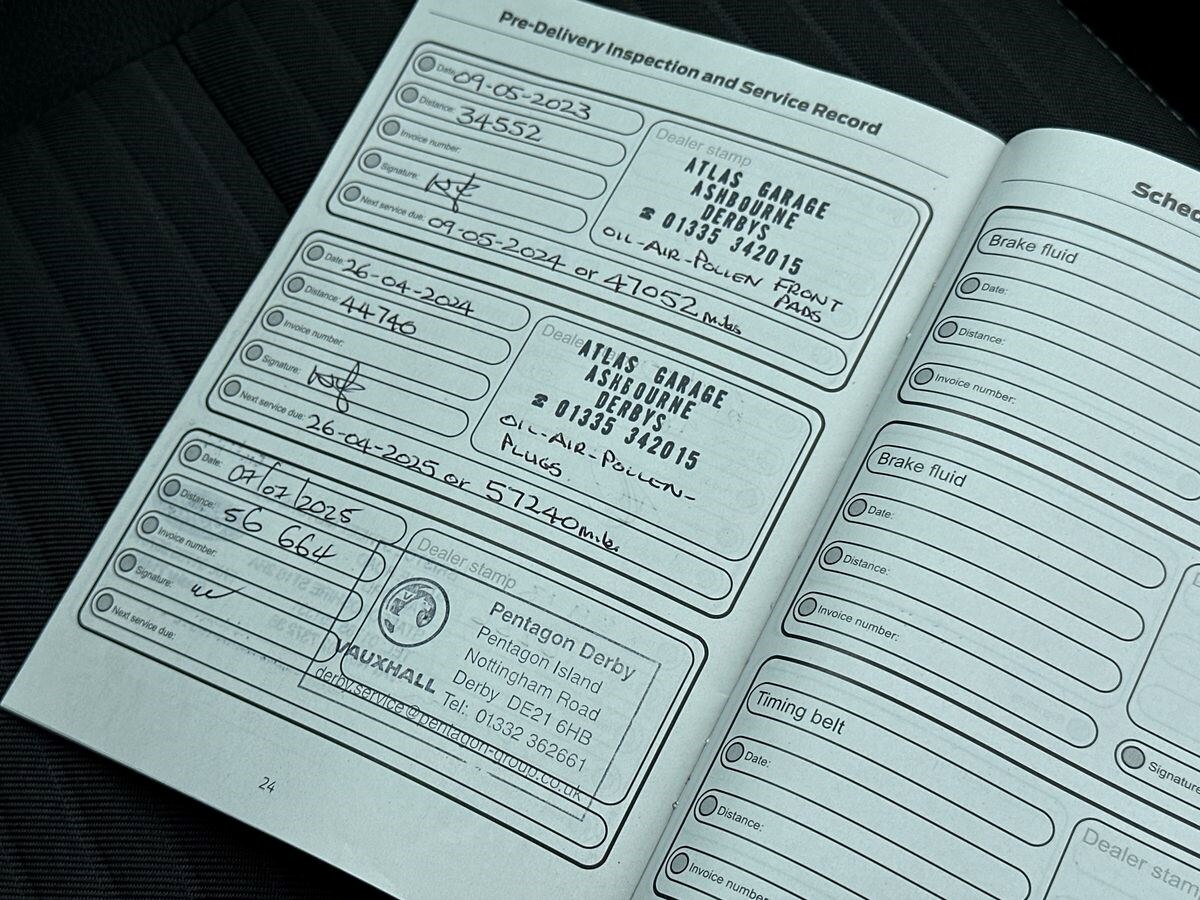 Pre-Delivery Inspection and Service Record
Date: 09-05-2023
Distance: 34552
Invoice number:
Signature:
Next service due: 09-05-2024 or 47052 miles
Dealer stamp
ATLAS GARAGE
ASHBOURNE
DERBYS
☎ 01335 342015
OIL-AIR-POLLEN FRONT
PADS
Date: 26-04-2024
Distance: 44740
Invoice number:
Signature:
Next service due: 26-04-2025 or 57240 miles
ATLAS GARAGE
ASHBOURNE
DERBYS
☎ 01335 342015
OIL-AIR-POLLEN-
PLUGS
Date: 07/07/2025
Distance: 56 664
Invoice number:
Signature:
Next service due:
Dealer stamp
VAUXHALL
Pentagon Derby
Pentagon Island
Nottingham Road
Derby DE21 6HB
Tel: 01332 362661
derby.service@pentagon-group.co.uk
24
Brake fluid
Date:
Distance:
Invoice number:
Brake fluid
Date:
Distance:
Invoice number:
Signature
Timing belt
Date:
Distance:
Invoice number
Dealer stam